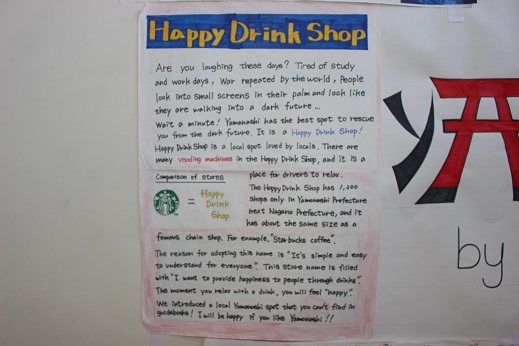 Happy Drink Shop
Are you laughing these days? Tired of study
and work days, War repeated by the world, People
look into small screens in their palm and look like
they are walking into a dark future...
Wait a minute! Yamanashi has the best spot to rescue
you from the dark future. It is a Happy Drink Shop!
Happy Drink Shop is a local spot loved by locals. There are
many vending machines in the Happy Drink Shop, and it is a
place for drivers to relax.
The Happy Drink Shop has 1,200
shops only in Yamanashi Prefecture
next Nagano Prefecture, and it
has about the same size as a
Comparison of stores
= Happy
Drink
Shop
famous chain shop. For example, "Starbucks coffee".
The reason for adopting this name is "It's simple and easy
to understand for everyone". This store name is filled
with "I want to provide happiness to people through drinks".
The moment you relax with a drink, you will feel "happy".
We introduced a local Yamanashi spot that you can't find in
guidebooks! I will be happy if you like Yamanashi!!
YA
by